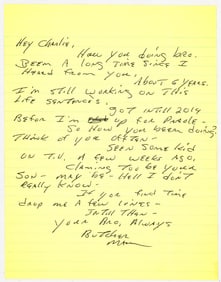 Hey Charlie,
How you doing bro.
Been a long time since I
Heard from you,
About 6 years.
I'm still working on this
life sentences.
got intill 2019
Befor I'm up for Parole-
So How you been doing?
Think of you often-
Seen some kid
on T.V. a few weeks ago,
claming too be your
Son- may be- Hell I don't
really know-
If you find time
drop me a few lines-
Intill Then-
your Bro, Always
Butcher